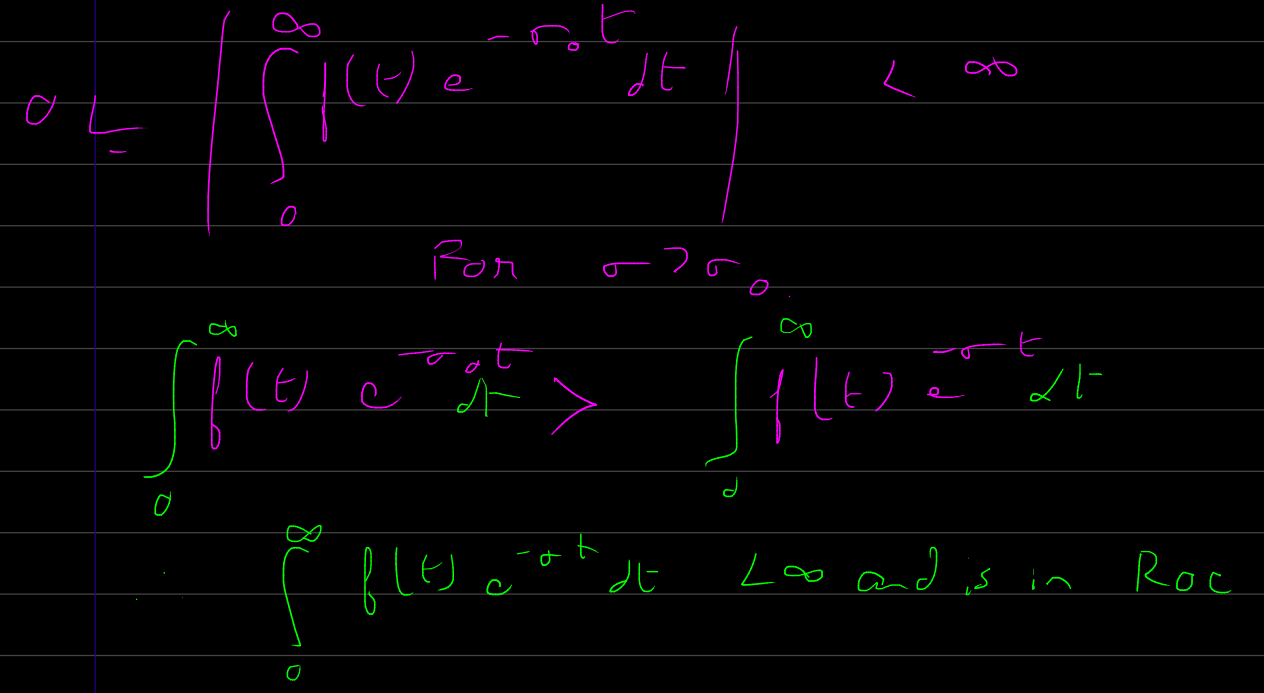 0 ≤ | ∫₀^∞ f(t) e^{-σ₀t} dt | < ∞
For σ > σ₀
∫₀^∞ f(t) e^{-σ₀t} dt > ∫₀^∞ f(t) e^{-σt} dt
∫₀^∞ f(t) e^{-σt} dt < ∞ and is in ROC